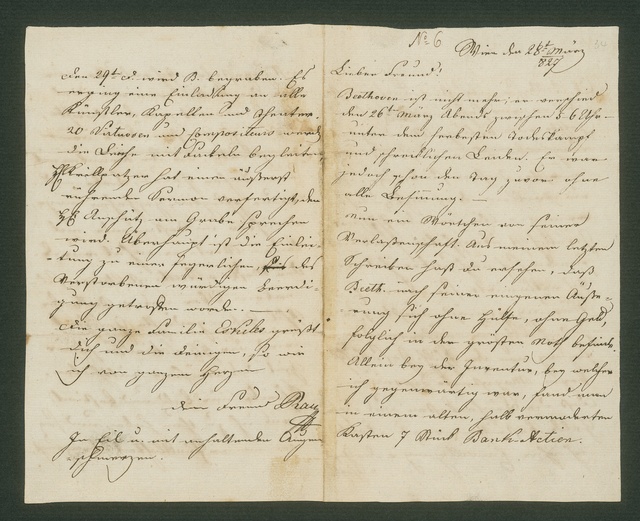 No 6
Wien den 28t März
827
Lieber Freund!
Beethoven ist nicht mehr; er verschied
den 26t März Abends zwischen 5-6 Uhr
unter dem herbesten Todeskampf
und schrecklichen Leiden. Er war
jedoch schon den Tag zuvor ohne
alle Besinnung. —
Nun ein Wörtchen von seiner
Verlassenschaft. Aus meinem letzten
Schreiben hast du ersehen, daß
Beeth. nach seiner eigenen Äuße-
rung sich ohne Hülfe, ohne Geld,
folglich in der größten Noth befinde,
Allein bey der Inventur, bey welcher
ich gegenwärtig war, fand man
in einem alten, halb vermoderten
Kasten 7 Stück Bank Actien.
Den 29t d. wird B. begraben. Es
erging eine Einladung an alle
Künstler, Kapellen und Theater.
20 Virtuosen und Compositeurs werden
die Leiche mit Fackeln begleiten,
Grillparzer hat einen äußerst
rührenden Sermon verfertigt, den
Anschütz am Grabe sprechen
wird. Überhaupt ist die Einlei-
tung zu einer feyerlichen, des
Verstorbenen würdigen Beerdi-
gung getroffen worden. —
Die ganze Familie Eskeles grüßt
Dich und die Deinigen, so wie
ich von ganzem Herzen
dein Freund Rau
In Eil u. mit anhaltenden Augen-
schmerzen.